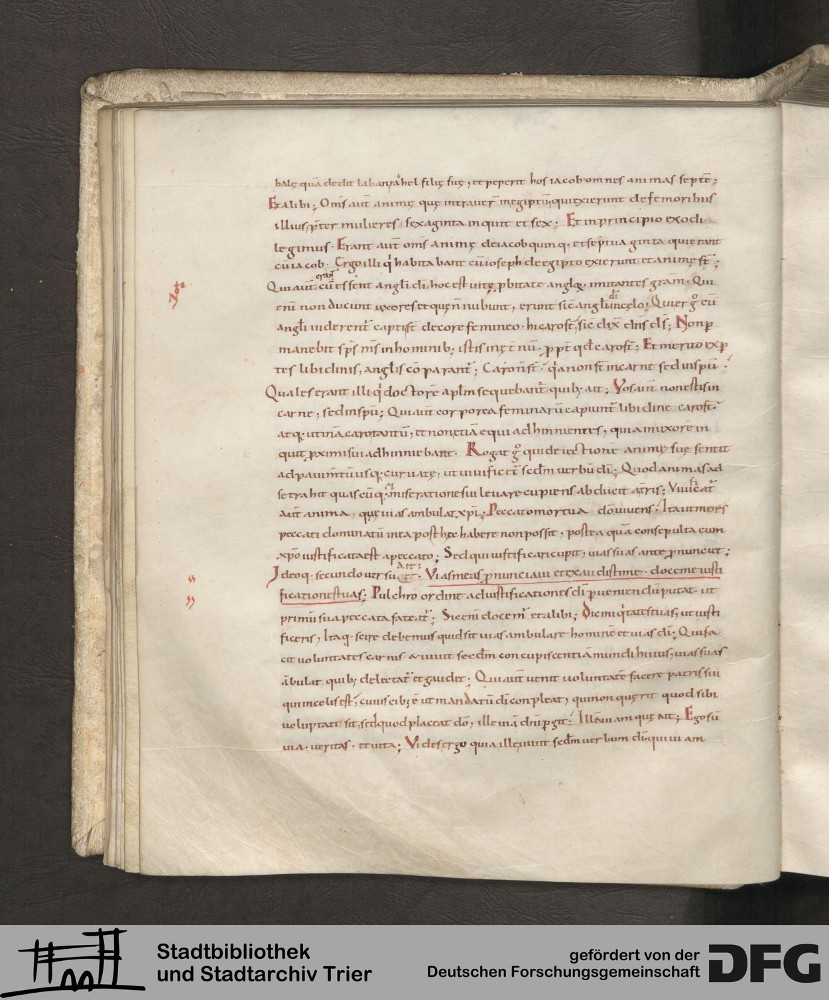 balę quā dedit laban rahel filię suę, et peperit hos iacob omnes animas septē;
Et alibi; Om̄s aut̄ animę quę intraver̄ in egiptū, qui exierunt de femoribus
illius, pręter mulieres sexaginta inquit et sex; Et in principio exodi
legimus. Erant aut̄ om̄s animę de iacob quinq, et septuaginta qui erant
cū iacob. Ergo illi q̇ habitabant cū ioseph de egipto exierunt et animę st̄;
erant
Qui aut̄ cū essent angeli di, hoc est vitę p̱bitate anglicę imitantes gram̄. Qui
eni non ducunt uxores et quę n̄ nubunt, erunt sic angli in cęlo; Qui ergo cū
angli viderent capti st̄ decore femineo. hi caro st̄, sic dix̄ dn̄s ds̄; Non p̱
manebit sp̄s ms̄ in hominib; istis in ęt̄nū. p̱pt̄ qd̄ caro st̄; Et merito exp̱
tes libidinis, anglis cōparant̄; Caro n̄ st̄. q̇a non st̄ in carne sed in sp̄u;
Quales erant illi q̇ doctorē ap̄lm sequebant̄ quib; ait; Vos aut̄ non estis in
carne, sed in sp̄u; Qui aut̄ corporea feminarū capiunt̄ libidine caro st̄.
atq; utinā caro tantū, et non etiā equi adhinnientes, quia in uxorē in
quit p̱ximi sui adhinniebant. Rogat g̊ qui deiectionē animę suę sentit
ad pavimtū usq; curvatę, ut vivificet̄ sedm verbū di; Quod animas ad
se trahit quascūq; miserationē sui levare cupiens abducit a t̄ris; Vivificat̄
aut̄ anima, quę vias ambulat xpi; Peccato mortua do vivens. Ita ut mors
peccati dominatū in ea post hęc habere non possit, postea quā consepulta cum
xpo iustificata est a peccato; Sed qui iustificari cupit, vias suas ante p̱nunciet;
Ideoq; secundo versu ait; Vias meas p̱nunciavi et exaudisti me. doce me iusti
ficationes tuas; Pulchro ordine ad iustificationes di p̱veniendū putat. ut
primū sua peccata fateat̄; Sic eni docem̄ et alibi; Dic iniq̇tates tuas, ut iusti
ficeris, Itaq; scire debemus quid sit vias ambulare hominē et vias di; Qui fa
cit voluntates carnis & vivit secdm concupiscentiā mundi huius, vias suas
ābulat quib; delectat̄ et gaudet; Qui aut̄ venit voluntatē facere patris sui
qui in cęlis est, cuius cib; ē ut mandatū di conpleat, qui non quęrit quod sibi
voluptati sit, sed quod placeat do, ille viā dni p̱git. Illā viam quę ait; Ego sū
via. veritas. et vita; Vides ergo quia ille vivit sedm verbum di, qui viam
Stadtbibliothek
und Stadtarchiv Trier
gefördert von der
Deutschen Forschungsgemeinschaft
DFG